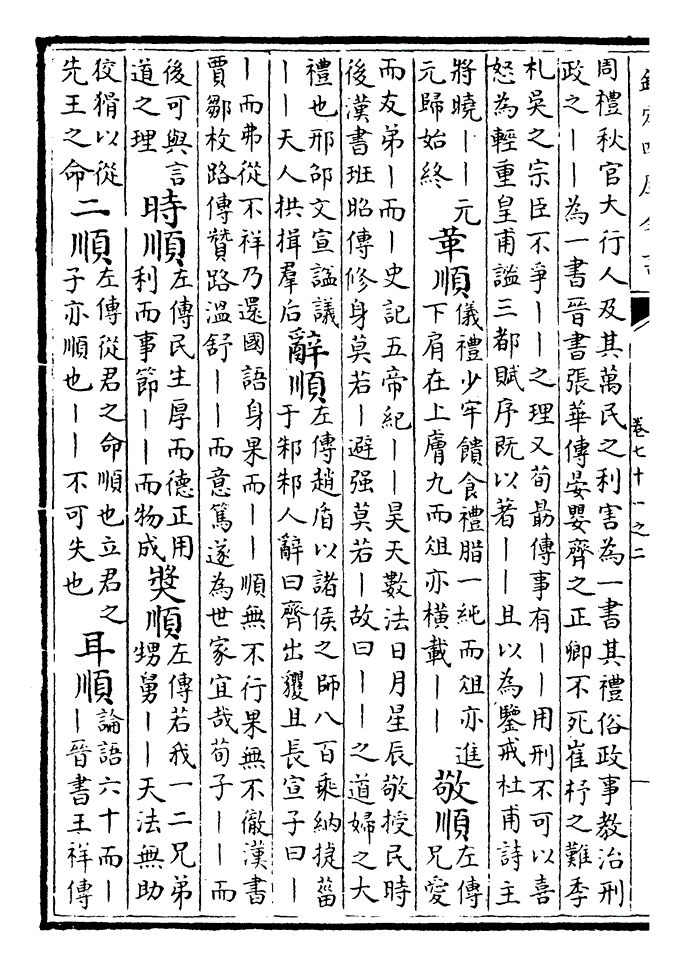 卷七十一之二
周禮秋官大行人及其萬民之利害為一書其禮俗政事教治刑
政之丨丨為一書晉書張華傳晏嬰齊之正卿不死崔杼之難季
札吳之宗臣不爭丨丨之理又荀勗傳事有丨丨用刑不可以喜
怒為輕重皇甫謐三都賦序既以著丨丨且以為鑒戒杜甫詩主
將曉丨丨元
元歸始終
革順
儀禮少牢饋食禮腊一純而俎亦進
下肩在上膚九而俎亦橫載丨丨
敬順
左傳
兄愛
而友弟丨而丨史記五帝紀丨丨昊天數法日月星辰敬授民時
後漢書班昭傳修身莫若丨避强莫若丨故曰丨丨之道婦之大
禮也邢邵文宣謚議
丨丨天人拱揖羣后
辭順
左傳趙盾以諸侯之師八百乘納捷菑
于邾邾人辭曰齊出貜且長宣子曰丨
丨而弗從不祥乃還國語身果而丨丨順無不行果無不徹漢書
賈鄒枚路傳贊路溫舒丨丨而意篤遂為世家宜哉荀子丨丨而
後可與言
道之理
時順
左傳民生厚而德正用
利而事節丨丨而物成
奬順
左傳若我一二兄弟
甥舅丨丨天法無助
狡猾以從
先王之命
二順
左傳從君之命順也立君之
子亦順也丨丨不可失也
耳順
論語六十而丨
丨晉書王祥傳